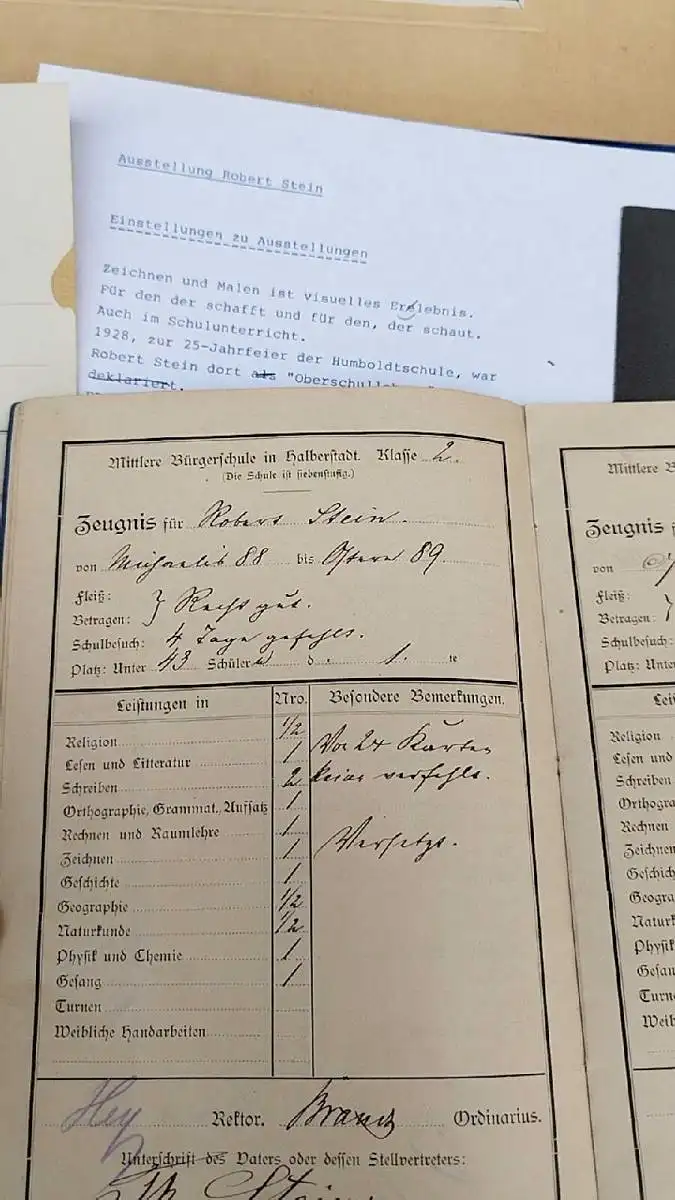 Ausstellung Robert Stein
Einstellungen zu Ausstellungen
Zeichnen und Malen ist visuelles Erlebnis.
Für den der schafft und für den, der schaut.
Auch im Schulunterricht.
1928, zur 25-Jahrfeier der Humboldtschule, war
Robert Stein dort als "Oberschulleh
deklariert.
Mittlere Bürgerschule in Halberstadt. Klasse 2.
(Die Schule ist siebenstufig.)
Zeugnis für Robert Stein.
von Michaelis 88 bis Ostern 89.
Fleiß:
Betragen: } Recht gut.
Schulbesuch: 4 Tage gefehlt.
Platz: Unter 43 Schüler d. 1. te
Leistungen in Nro. Besondere Bemerkungen.
Religion 1/2
Lesen und Litteratur 1 Von 24 Karten
Schreiben 2 keine verfehlt.
Orthographie, Grammat., Aufsatz 1
Rechnen und Raumlehre 1
Zeichnen 1 Versetzt.
Geschichte 1
Geographie 1/2
Naturkunde 1/2
Physik und Chemie 1
Gesang 1
Turnen
Weibliche Handarbeiten
Rektor. Ordinarius.
Unterschrift des Vaters oder dessen Stellvertreters:
Stein.
Mittlere B
Zeugnis f
von
Fleiß:
Betragen: }
Schulbesuch:
Platz: Unte
Lei
Religion
Lesen und
Schreiben
Orthogra
Rechnen
Zeichnen
Geschich
Geogra
Naturk
Physik
Gesan
Turn
Weib